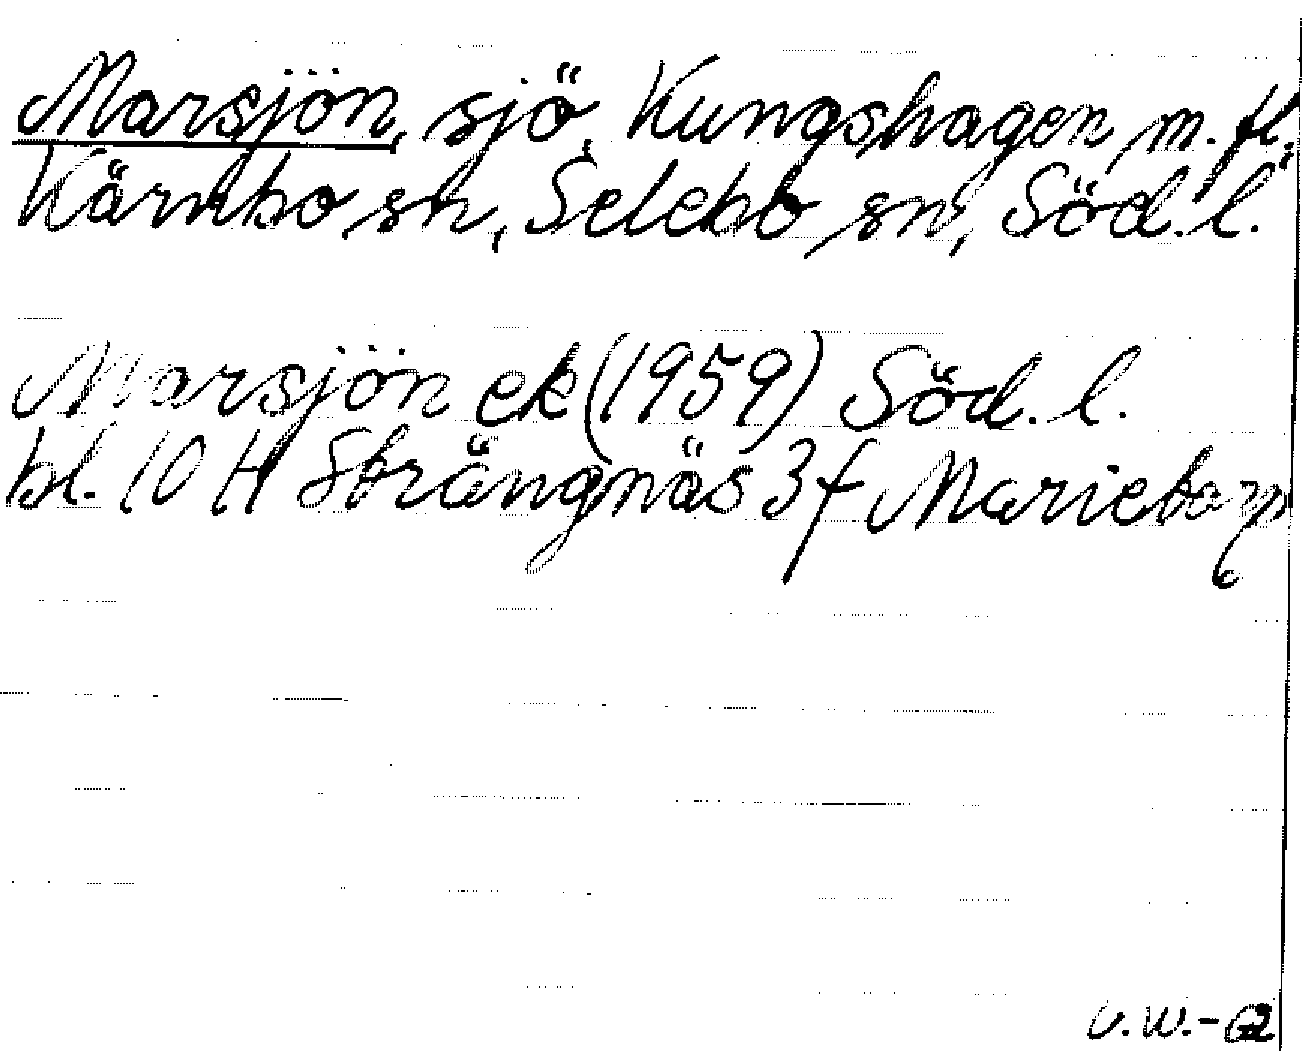 Marsjön, sjö, Kungshagen, m. fl.,
Kärnbo sn, Selebo sn, Söd. l.
Marsjön ek (1959) Söd. l.
bl. 10 H Strängnäs 3 f Mariebo
v. W.-62